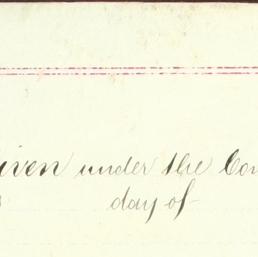 iven under the Com
day of